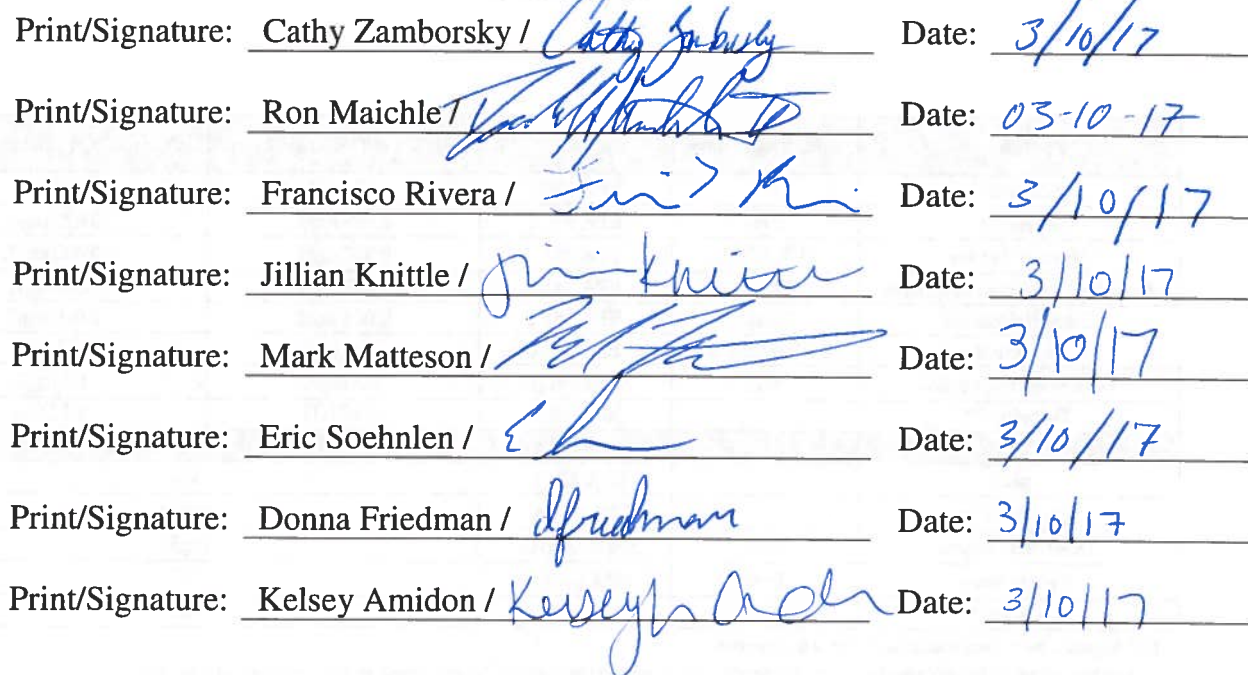 Print/Signature: Cathy Zamborsky / Cathy Zamborsky Date: 3/10/17
Print/Signature: Ron Maichle / Date: 03-10-17
Print/Signature: Francisco Rivera / Date: 3/10/17
Print/Signature: Jillian Knittle / Date: 3/10/17
Print/Signature: Mark Matteson / Date: 3/10/17
Print/Signature: Eric Soehnlen / Date: 3/10/17
Print/Signature: Donna Friedman / dfriedman Date: 3/10/17
Print/Signature: Kelsey Amidon / Kelsey Date: 3/10/17